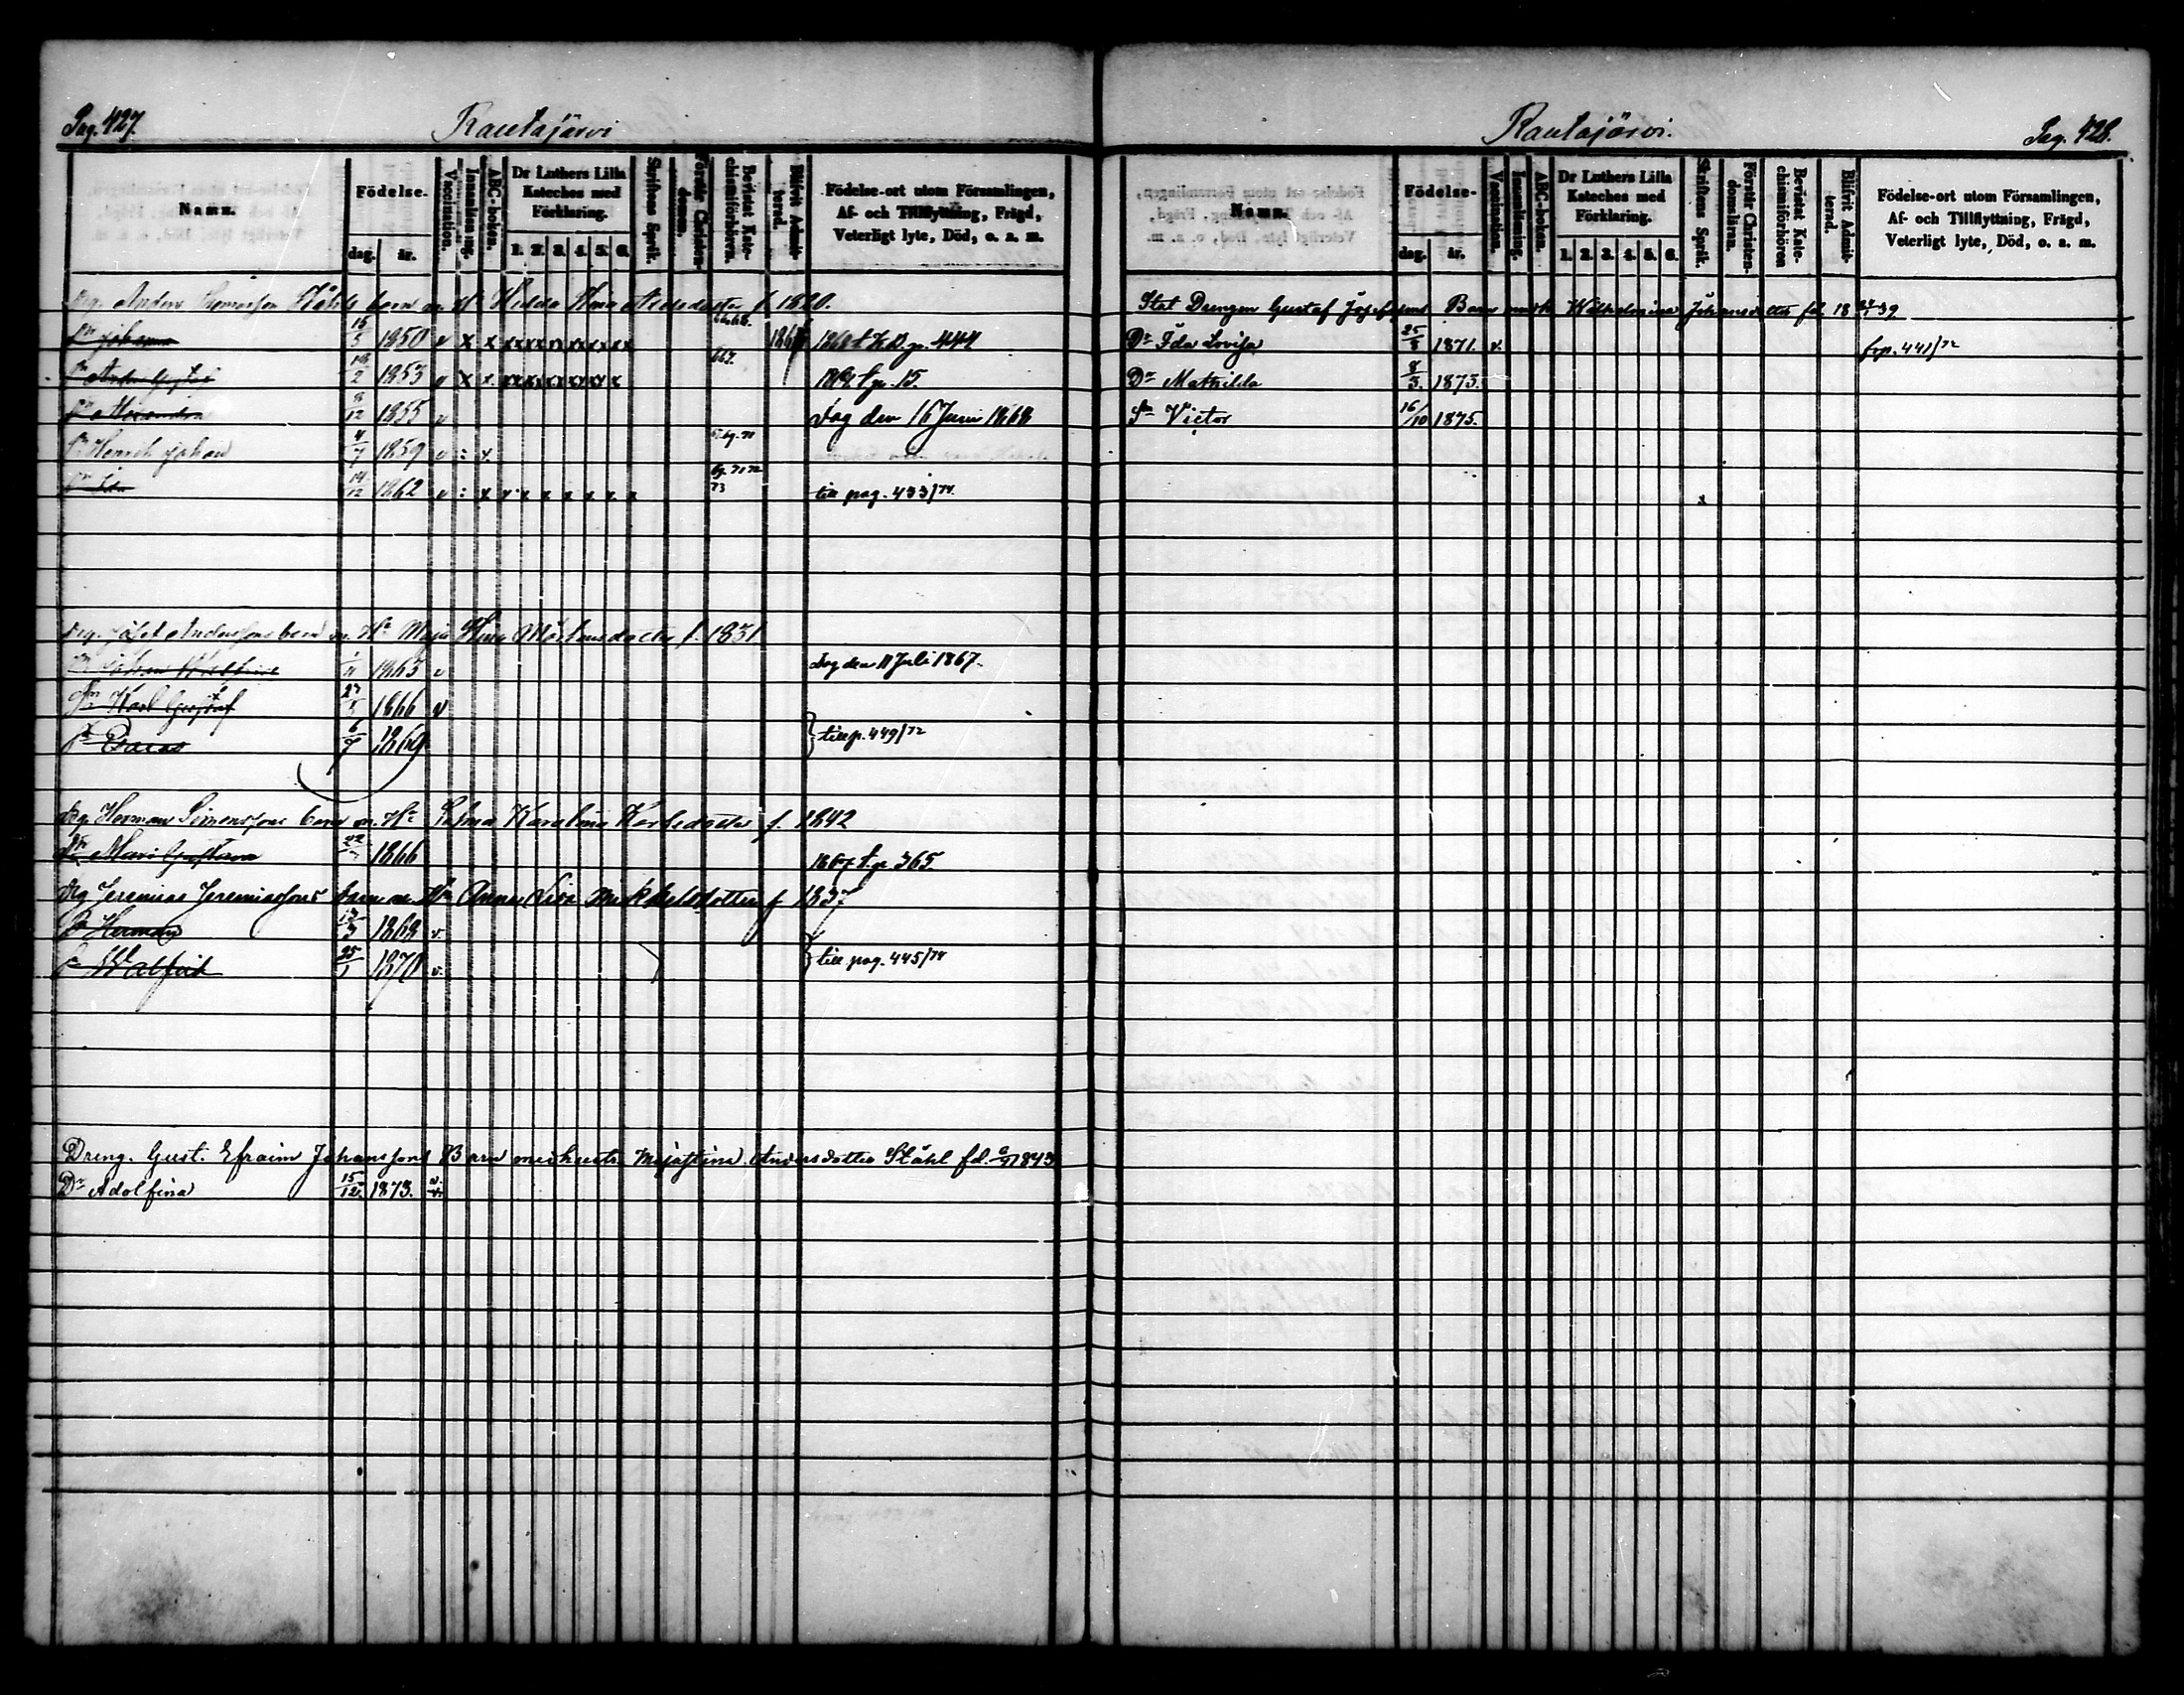 Pag. 427. Rautajärvi
Namn. Födelse- dag. år. Vaccination. Innanläsning. ABC-boken. Dr Luthers Lilla Kateches med Förklaring. 1. 2. 3. 4. 5. 6. Skriftens Språk. Förstår Christendomen. Bevistat Katechismiförhören. Blifvit Admitterad. Födelse-ort utom Församlingen, Af- och Tillflyttning, Frägd, Veterligt lyte, Död, o. a. m.
Drg. Anders Thomasson Ståhls barn m. H: Hedda Stina f. 1820.
Dr Johanna 15/3 1850 v x x 1868 p. 444
Sn Gustaf 18/2 1853 v x x 667. p. 15.
Dr Alexandra 8/12 1855 v dog den 16 Juni 1868
Sn Henrik Johan 4/7 1859 v : x.
Dr Ida 14/12 1862 v : x 73 till pag. 433/74.
Drg. Josef Anderssons barn m. H: Maja Stina Mårtensdotter f. 1831
Sn Johan Walfrid 1/11 1863 v dog den 11 Juli 1867.
Sn Karl Gustaf 27/5 1866 v
1869 till p. 449/72
Drg. Herman Simonssons barn m. H: Karolina Karlsdotter f. 1842
Dr Mari Gustava 22 1866 1867 t. p. 365.
Drg Jeremias Jeremiassons barn m. H: Anna Lisa Mickelsdotter f 1837
Sn Herman 13/3 1868 v.
Sn Walfrid 25/1 1870 v. till pag. 445/74
Dreng. Gust. Efraim Johanssons Barn med hustr. Majastina Andersdotter Ståhl fd. 1843
Dr Adolfina 15/12 1873. v.
Rautajärvi. Pag. 428.
Namn. Födelse- dag. år. Vaccination. Innanläsning. ABC-boken. Dr Luthers Lilla Kateches med Förklaring. 1. 2. 3. 4. 5. 6. Skriftens Språk. Förstår Christendomsläran. Bevistat Katechismiförhören Blifvit Admitterad. Födelse-ort utom Församlingen, Af- och Tillflyttning, Frägd, Veterligt lyte, Död, o. a. m.
Stat Drengen Gustaf Josefssons Barn med h. Wilhelmina Johansdotter fd. 18 39
Dr Ida Lovisa 25/5 1871. v. frp. 441/72
Dr Mathilda 8/3. 1873.
Sn Victor 16/10 1875.